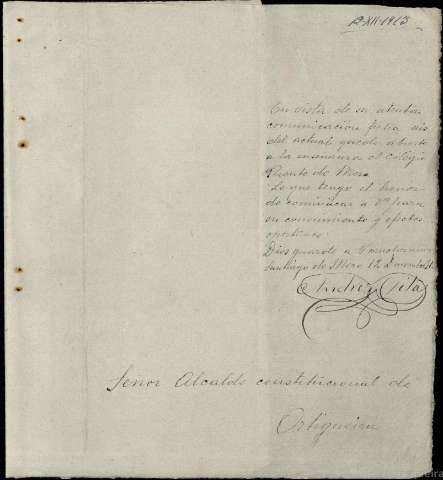 12-XII-1913
En vista de su atenta
comunicacion fecha seis
del actual quedo abierto
a la enseñanza el colegio
Puente de Mera
Lo que tengo el honor
de comunicar a Vd para
su conocimiento y efectos
oportunos.
Dios guarde a V muchos
Santiago de Mera 12 Diciembre
Andres Pita
Señor Alcalde constitucional de
Ortigueira